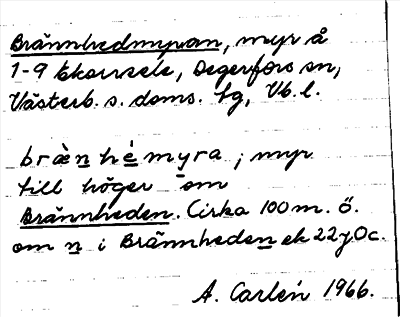 Brännhedmyran, myr å
1-9 Ekorrsele, Degerfors sn,
Västerb. s. doms. tg, Vb. l.
bræ̀n hé myra ; myr
till höger om
Brännheden. Cirka 100 m. ö.
om n i Brännheden ek 22 j 0 c.
A. Carlén 1966.